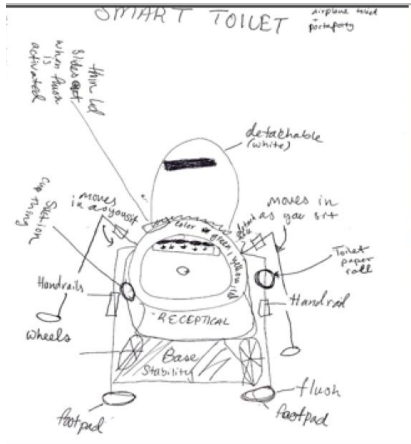 SMART TOILET
airplane toilet
portapotty
thin lid
slides out
when flush
is
activated
detachable
(white)
moves
in as you sit
moves in
as you sit
Suction
cup thing
color green / yellow
Toilet
paper
roll
Handrails
Handrail
RECEPTICAL
wheels
Base
Stability
flush
footpad
footpad